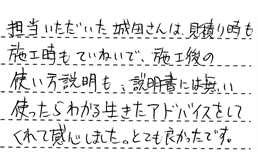 担当いただいた成田さんは、見積り時も
施工時もていねいで、施工後の
使い方説明も、説明書には無い
使ったらわかる生きたアドバイスをして
くれて感心しました。とても良かったです。